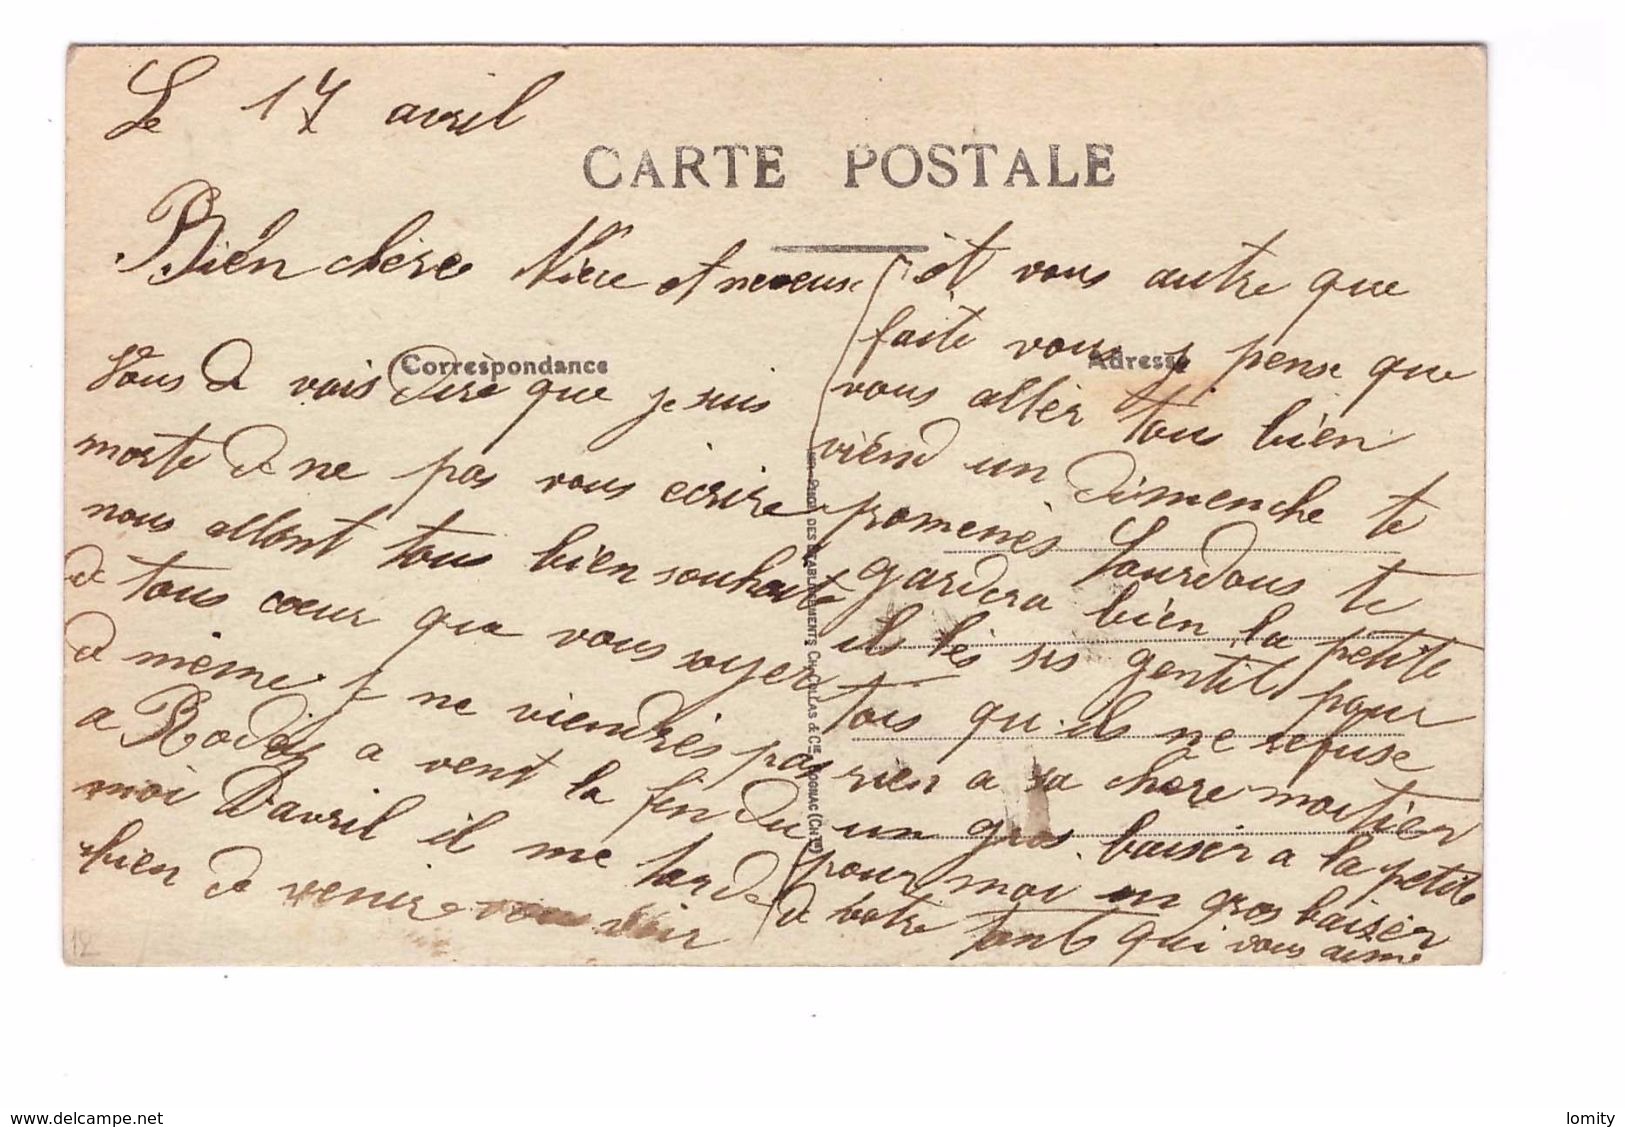 Le 17 avril
CARTE POSTALE
Bién chère Nièce et neveus
Correspondance
Vous de vais dire que je suis
morte de ne pas vous écrire
nous allont tous bien souhaite
de tous coeur que vous soyer
de mème. j ne viendrés pas
a Rodez a vent la fin du
moi D'avril il me tarde
bien de venire vous voir
et vous autre que
Adresse
faite vous j pense que
vous aller tous bien
viend un dimenche te
promenés Lourdous te
gardera bien la petite
ils lés sis gentil pour
tois qu'ils ne refuse
rien a sa chère
un gros baiser a la petite
pour moi un gros baiser
de votre tante qui vous aime
PHOT. DES ETABLISSEMENTS CH. COLLAS & CIE, COGNAC (CHTE)
12
www.delcampe.net
lomity